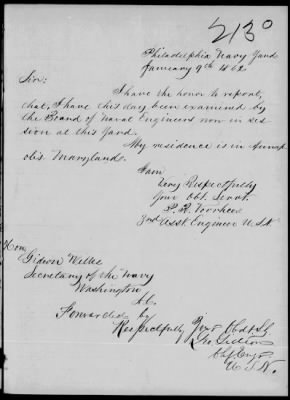 213°
Philadelphia Navy Yard
January 9th 1862
Sir:
I have the honor to report,
that, I have this day been examined by
the Board of Naval Engineers now in ses-
sion at this Yard.
My residence is in Annap
olis Maryland.
I am
Very Respectfully
Your Obt. Servt.
P. R. Voorhees
3rd Asst Engineer U.S.N
Hon.
Gideon Welles
Secretary of the Navy
Washington
D.C.
Forwarded by
Respectfully Your Obdt St.
Chf Engr
U.S.N.